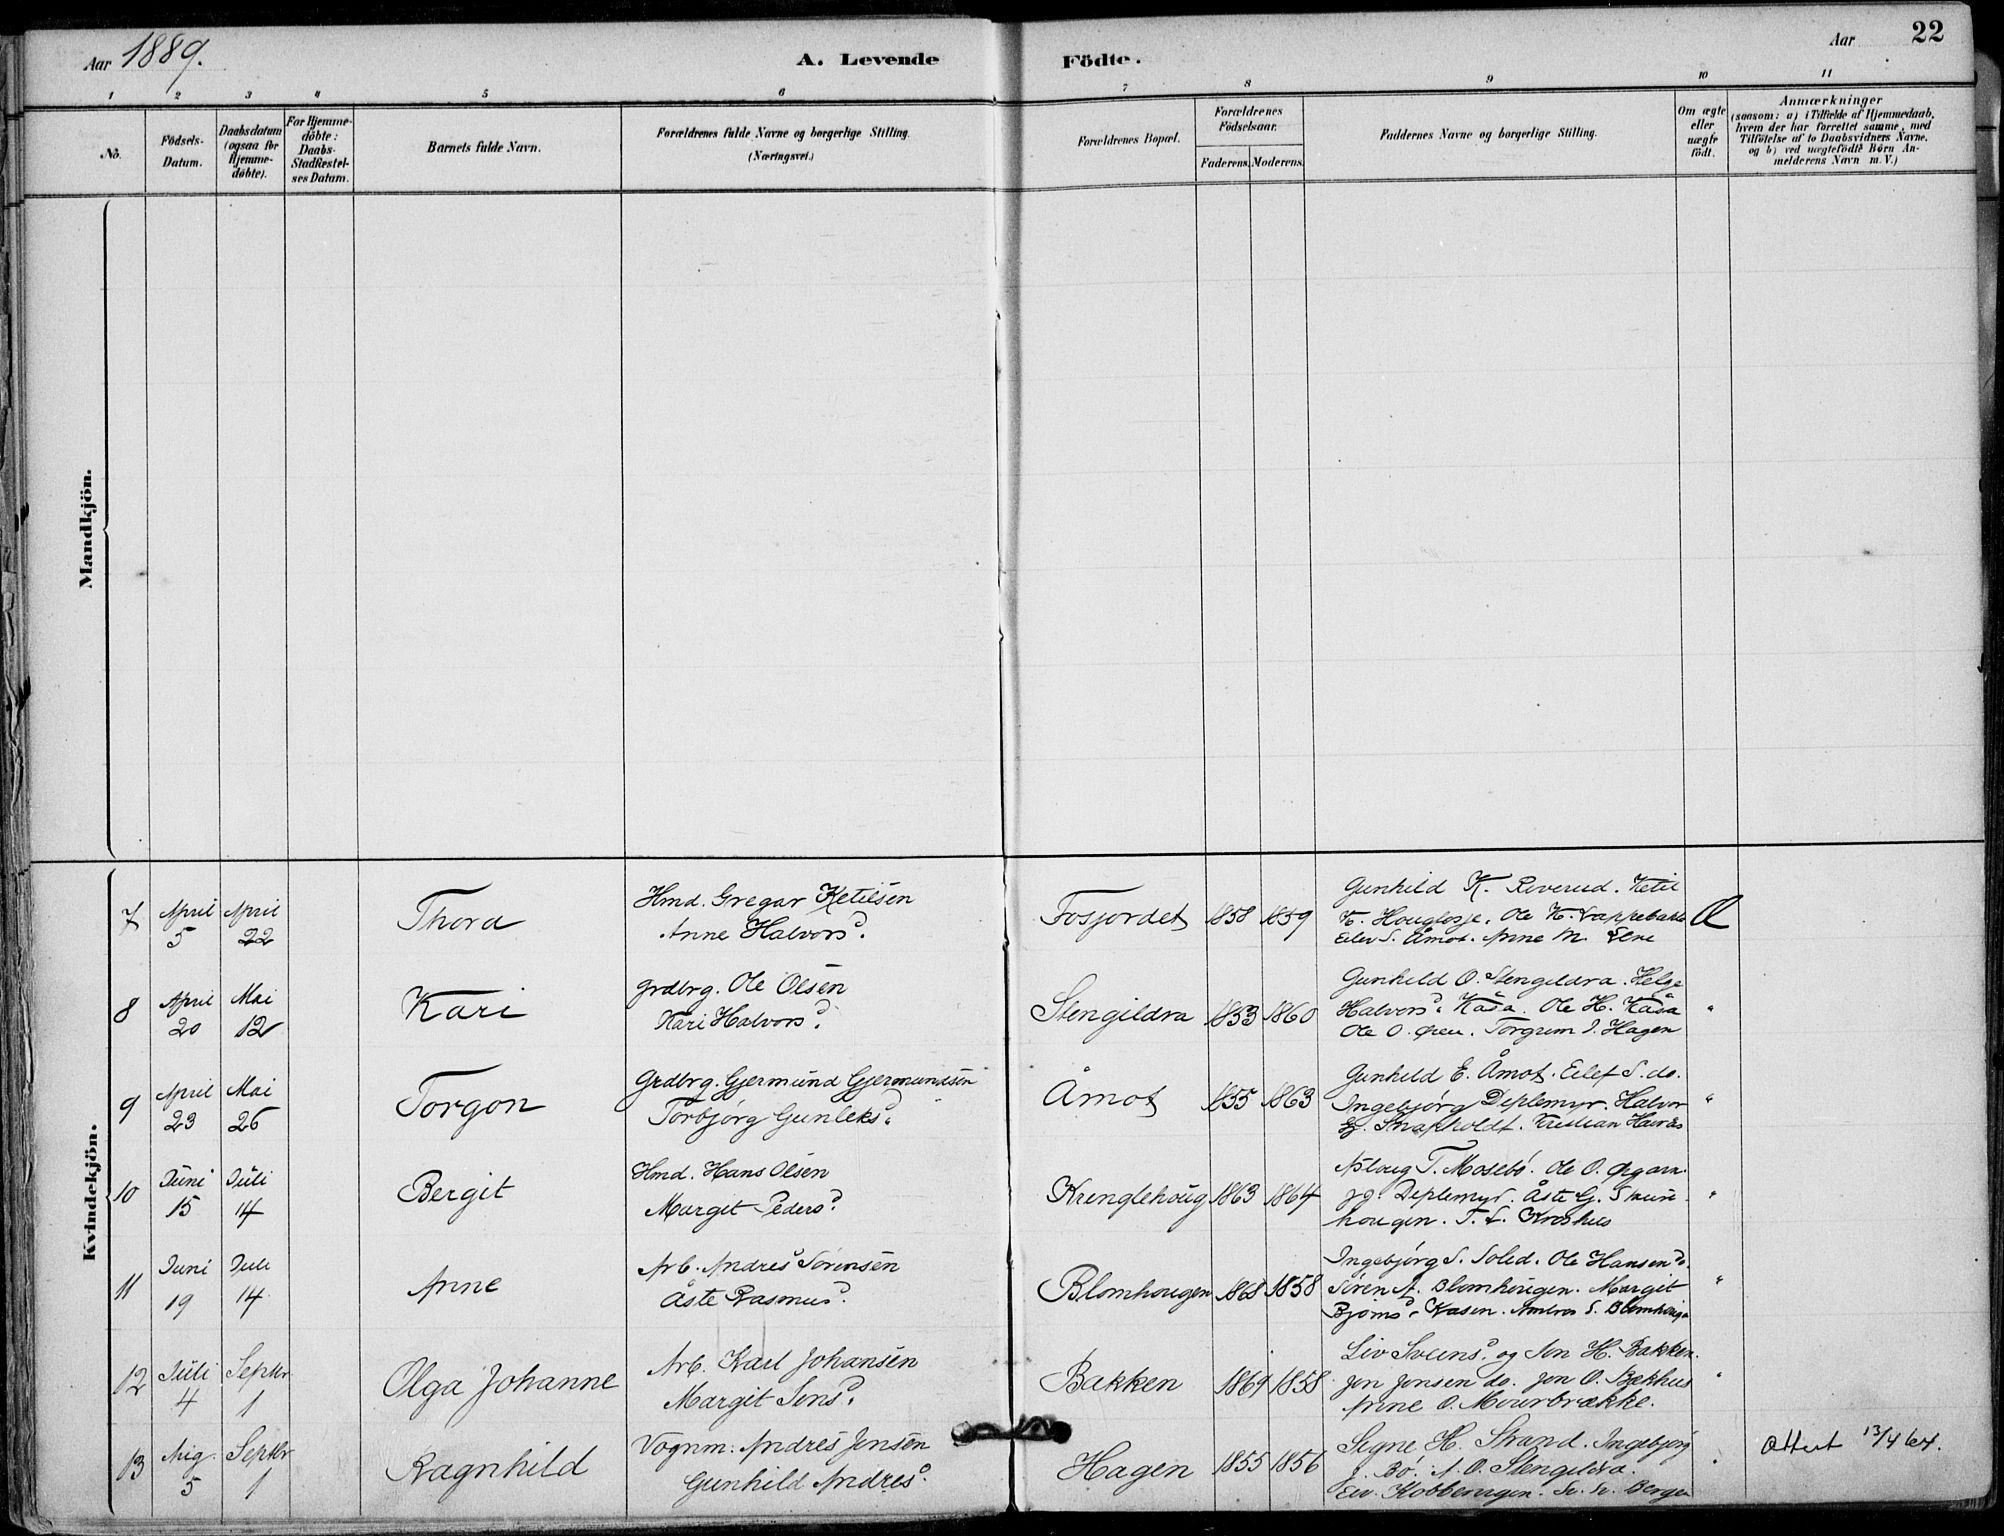 Aar 1889.
A. Levende Födte.
Aar 22
1 2 3 4 5 6 7 8 9 10 11
No.
Födsels-Datum.
Daabsdatum (ogsaa for Hjemme-döbte).
For Hjemme-döbte: Daabs-Stadfæstel-ses Datum.
Barnets fulde Navn.
Forældrenes fulde Navne og borgerlige Stilling. (Næringsvei.)
Forældrenes Bopæl.
Forældrenes Födselsaar.
Faderens. Moderens.
Faddernes Navne og borgerlige Stilling.
Om ægte eller uægte födt.
Anmærkninger
(saasom: a) i Tilfælde af Hjemmedaab,
hvem der har forrettet samme, med
Tilföielse af to Daabsvidners Navne,
og b) ved uægtefödte Börn An-
melderens Navn m. V.)
Mandkjön.
Kvindekjön.
7 April 5 April 22 Thora
Hmd. Gregar Ketilsen
Anne Halvorsd.
Fosjordet 1858 1859
Gunhild K. Roverud. Ketil
K. Houglosje. Ole K.
Eilev S. Åmot. Anne M.
8 April 20 Mai 12 Kari
Grdbrg. Ole Olsen
Kari Halvorsd.
Stengildra 1853 1860
Gunhild O. Stengildra. Helge
Halvorsd. Kåsa. Ole H. Kåsa
Ole O. Øren. Torgrim J. Hagen "
9 April 23 Mai 26 Torgon
Grdbrg. Gjermund Gjermundsen
Torbjørg Gunleksd.
Åmot 1855 1863
Gunhild E. Åmot. Eilef S. do.
Ingebjørg Deplemyr. Halvor
Snapholdt. Kristian "
10 Juni 15 Juli 14 Bergit
Hmd. Hans Olsen
Margit Pedersd.
Krenglehoug 1863 1864
Aslaug T. Mosebø. Ole O. Øygarn.
Deplemyr. Åste G. Skure
hougen. T. L. Kroshus "
11 Juni 19 Juli 14 Anne
Arb. Andres Sørensen
Åste Rasmusd.
Blomhougen 1868 1858
Ingebjørg S. Solid. Ole Hansen
Søren A. Blomhougen. Margit
Bjørnsd. Kåsen. Andres S. Blomhougn "
12 Juli 4 Septbr 1 Olga Johanne
Arb. Karl Johansen
Margit Jonsd.
Bakken 1869 1858
Liv Sveinsd. og Jon H. Bakken.
Jon Jonsen do. Jon O. Bækhus
Anne O. Mourbrække. "
13 Aug. 5 Septbr 1 Ragnhild
Vognm. Andres Jensen
Gunhild Andresd.
Hagen 1855 1856
Signe H. Strand. Ingebjørg
J. Bø. A. O. Stengildra.
Eiv. Kobberugen. Bergen "
Attest 13/4 64.